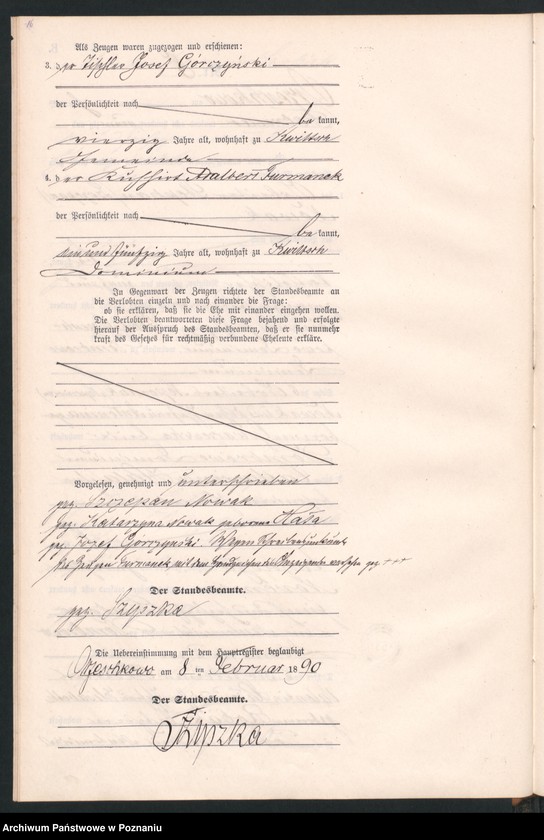 16
Als Zeugen waren zugezogen und erschienen:
3. der Tischler Josef Górczyński
der Persönlichkeit nach
bekannt,
vierzig Jahre alt, wohnhaft zu Kwiltsch
Gemeinde
4. der Kuhhirt Adalbert Furmanek
der Persönlichkeit nach
bekannt,
einundfünfzig Jahre alt, wohnhaft zu Kwiltsch
Dominium
In Gegenwart der Zeugen richtete der Standesbeamte an
die Verlobten einzeln und nach einander die Frage:
ob sie erklären, daß sie die Ehe mit einander eingehen wollen.
Die Verlobten beantworteten diese Frage bejahend und erfolgte
hierauf der Ausspruch des Standesbeamten, daß er sie nunmehr
kraft des Gesetzes für rechtmäßig verbundene Eheleute erkläre.
Vorgelesen, genehmigt und unterschrieben
gez. Szczepan Nowak
gez. Katarzyna Nowak geborene
gez. Jozef Gorczynski. Wegen Schreibensunkunde
des Zeugen Furmanek mit dem Handzeichen des versehen gez. +++
Der Standesbeamte.
gez. Szyszka
Die Uebereinstimmung mit dem Hauptregister beglaubigt
am 8 ten Februar 1890
Der Standesbeamte.
Szyszka
Archiwum Państwowe w Poznaniu